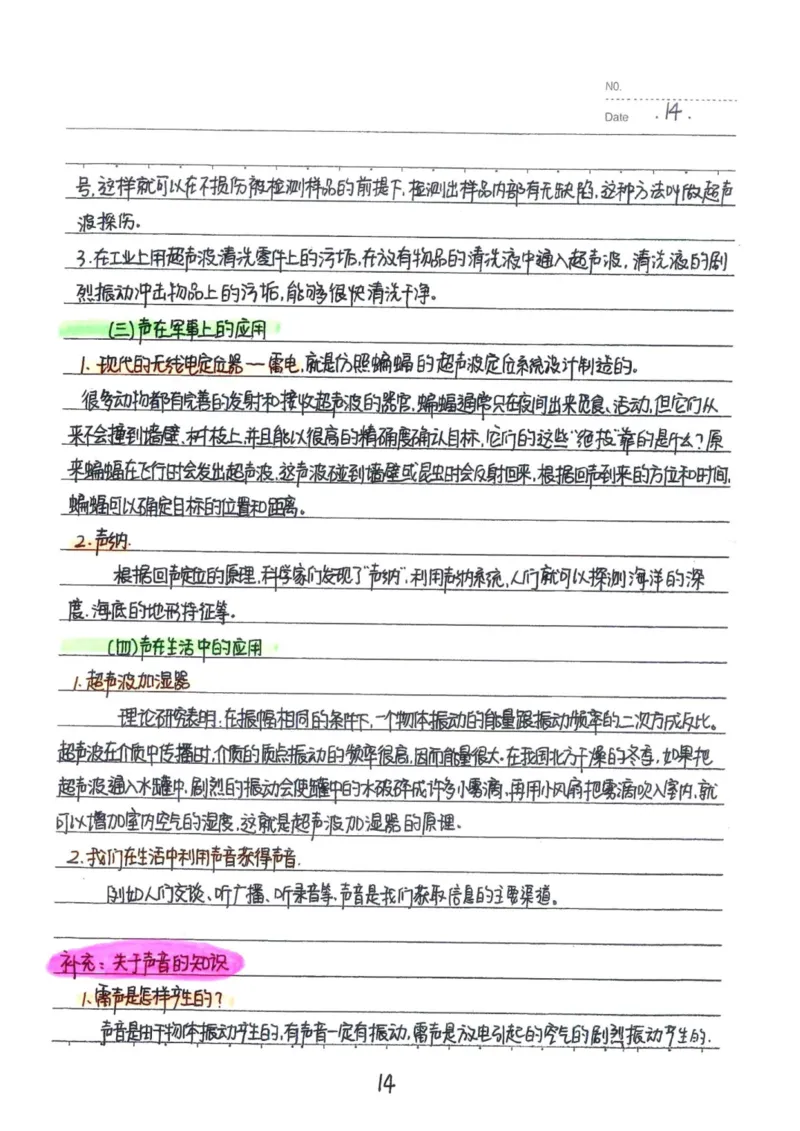 NO.
Date .14.
号,这样就可以在不损伤被检测样品的前提下,检测出样品内部有无缺陷,这种方法叫做超声
波探伤。
3.在工业上用超声波清洗零件上的污垢,在放有物品的清洗液中通入超声波,清洗液的剧
烈振动冲击物品上的污垢,能够很快清洗干净。
(三)声在军事上的应用
1.现代的无线电定位器一雷电,就是仿照蝙蝠的超声波定位系统设计制造的。
很多动物都有完善的发射和接收超声波的器官,蝙蝠通常只在夜间出来觅食、活动,但它们从
来不会撞到墙壁、树枝上,并且能以很高的精确度确认目标,它们的这些“绝技”靠的是什么?原
来蝙蝠在飞行时会发出超声波,这声波碰到墙壁或昆虫时会反射回来,根据回声到来的方位和时间,
蝙蝠可以确定目标的位置和距离。
2.声纳.
根据回声定位的原理,科学家们发现了“声纳”,利用声纳系统,人们就可以探测海洋的深
度、海底的地形特征等。
(四)声在生活中的应用
1.超声波加湿器
理论研究表明:在振幅相同的条件下,一个物体振动的能量跟振动频率的二次方成反比。
超声波在介质中传播时,介质的质点振动的频率很高,因而能量很大.在我国北方干燥的冬季,如果把
超声波通入水罐中,剧烈的振动会使罐中的水破碎成许多小雾滴,再用小风扇把雾滴吹入室内,就
可以增加室内空气的湿度,这就是超声波加湿器的原理.
2.我们在生活中利用声音获得声音.
例如人们交谈、听广播、听录音等,声音是我们获取信息的主要渠道。
补充:关于声音的知识
1.雷声是怎样产生的?
声音是由于物体振动产生的,有声音一定有振动,雷声是放电引起的空气的剧烈振动产生的.
14